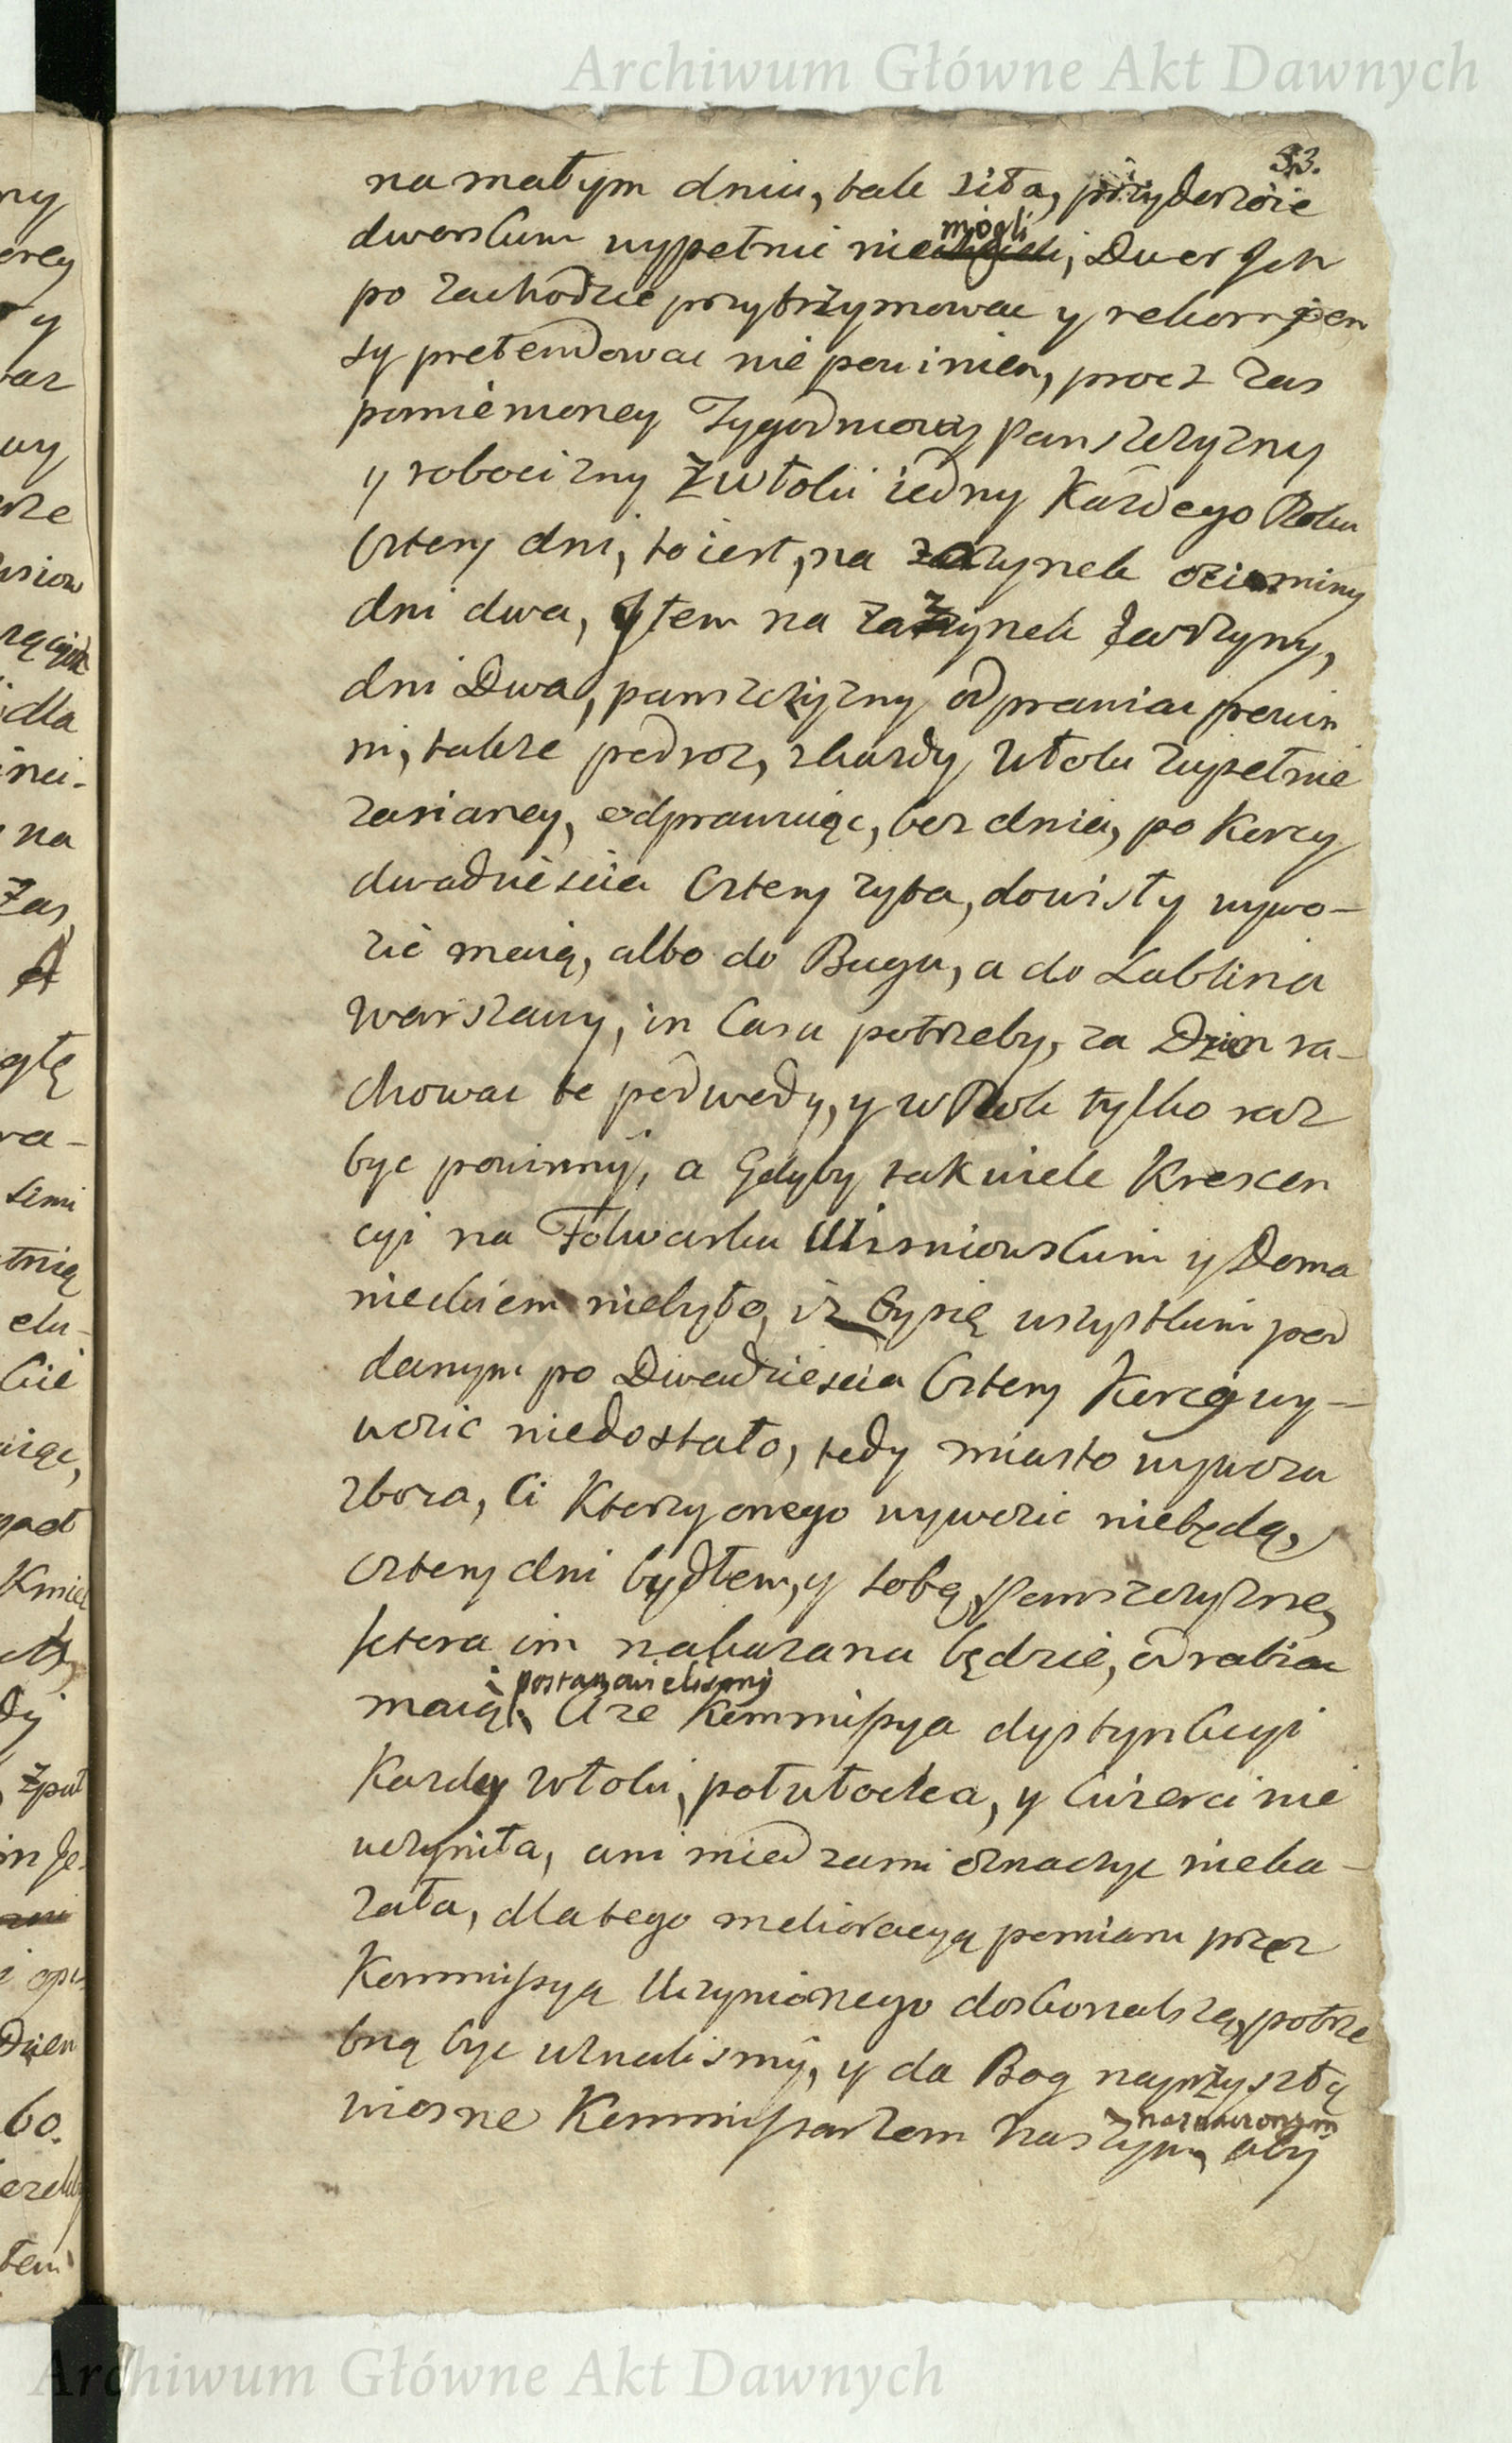 Archiwum Główne Akt Dawnych
53.
na małym dniu, tak siła, przy dozorze
dworskim wypełnić nie mogli, Dwor Ich
po zachodzie przytrzymować y rekompen
sy pretendować nie powinien, procz zas
pomienioney Tygodniowey Panszczyzny
y robocizny Zwłoki iedny Kazdego Roku
Cztery dni, to iest, na zażynek oziminy
dni dwa, Item na zażynek Jarzyny,
dni Dwa, panszczyzny odprawiac powin
ni, takze podroz, z kazdy Włoki zupełnie
zasianey, odprawuiąc, bez dnia, po Korcy
dwadziescia Cztery zyta, do wisły wywo-
zić maią, albo do Bugu, a do Lublina
Warszawy, in Casu potrzeby, za Dzien ra-
chować te podwody, y w Rok tylko raz
byc powinny, a Gdyby tak wiele Krescen
cyi na Folwarku Wisniowskim y Doma
niekiem niebyło, iz by się wszystkim pod
danym po Dwadziescia Cztery Korcy wy-
wozic niedostało, tedy miasto wywozu
zboza, Ci Ktorzy onego wywozic niebędą,
cztery dni bydłem, y sobą, Panszczyznę,
ktora im nakazana będzie, odrabiac
maią postanowielismy
Aze Kommissya dystynkcyi
Kazdey Włoki, połwłocka, y cwierci nie
uczyniła, ani miedzami oznaczyc nieka-
zała, dlatego melioracyą pomiaru przez
Kommissyą Uczynionego doskonalszą, potrze
bną byc uznalismy, y da Bog na przyszłą
wiosne Kommissarzom naszym naznaczonym aby
Archiwum Główne Akt Dawnych